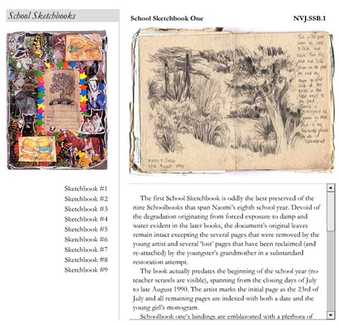 School Sketchbooks
School Sketchbook One
NVJ.SSB.1
Sketchbook #1
Sketchbook #2
Sketchbook #3
Sketchbook #4
Sketchbook #5
Sketchbook #6
Sketchbook #7
Sketchbook #8
Sketchbook #9
The first School Sketchbook is oddly the best preserved of the
nine Schoolbooks that span Naomi's eighth school year. Devoid of
the degradation originating from forced exposure to damp and
water evident in the later books, the document's original leaves
remain intact excepting the several pages that were removed by the
young artist and several 'lost' pages that have been reclaimed (and
re-attached) by the youngster's grandmother in a substandard
restoration attempt.
The book actually predates the beginning of the school year (no
teacher scrawls are visible), spanning from the closing days of July
to late August 1990. The artist marks the initial page as the 23rd of
July and all remaining pages are indexed with both a date and the
young girl's monogram.
Schoolbook one's bindings are emblavonated with a plethora of